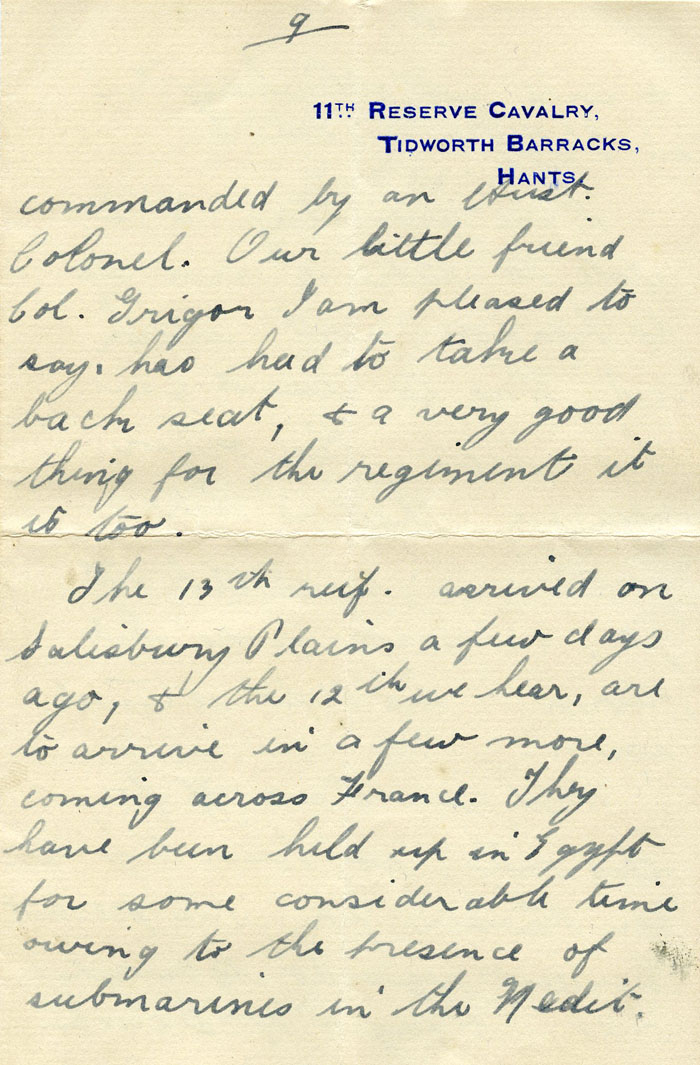 9
11TH RESERVE CAVALRY,
TIDWORTH BARRACKS,
HANTS
commanded by an Aust.
Colonel. Our little friend
Col. Grigor I am pleased to
say. has had to take a
back seat, & a very good
thing for the regiment it
is too.
The 13th reif. arrived on
Salisbury Plains a few days
ago, & the 12th we hear, are
to arrive in a few more,
coming across France. They
have been held up in Egypt
for some considerable time
owing to the presence of
submarines in the Medit.